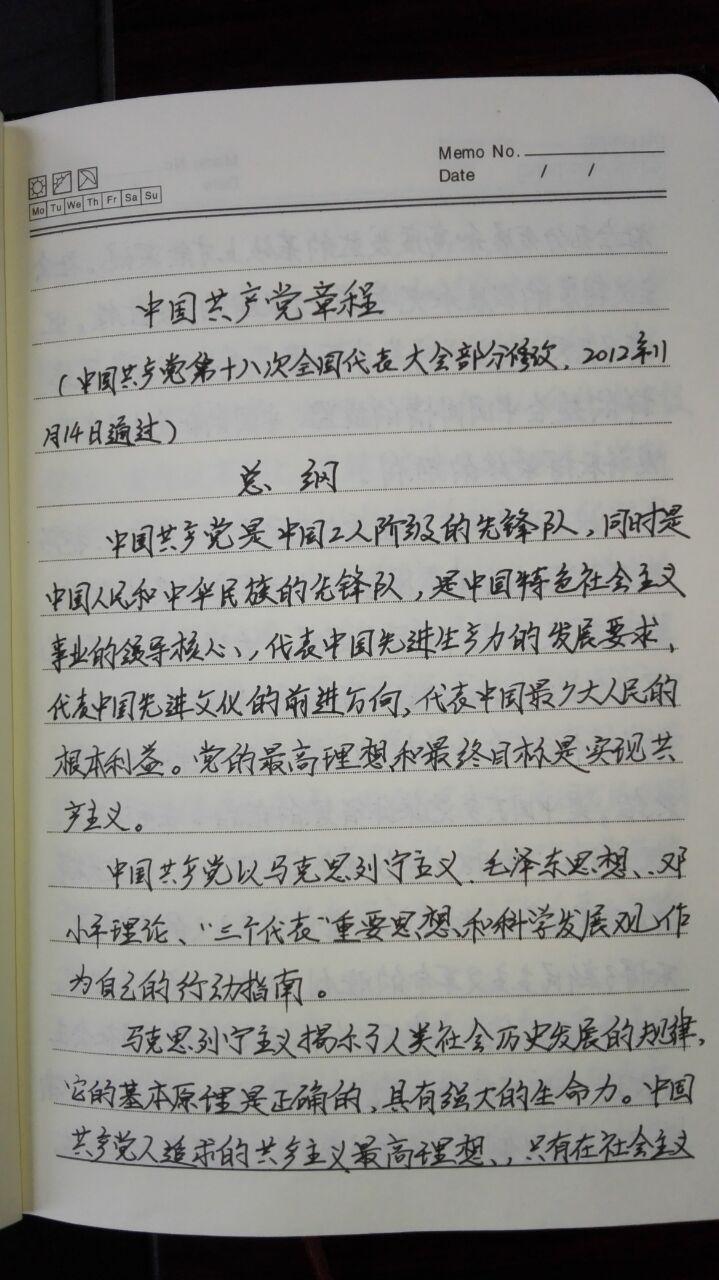 Memo No.
Date / /
Mo Tu We Th Fr Sa Su
中国共产党章程
(中国共产党第十八次全国代表大会部分修改,2012年11
月14日通过)
总纲
中国共产党是中国工人阶级的先锋队,同时是
中国人民和中华民族的先锋队,是中国特色社会主义
事业的领导核心,代表中国先进生产力的发展要求,
代表中国先进文化的前进方向,代表中国最广大人民的
根本利益。党的最高理想和最终目标是实现共
产主义。
中国共产党以马克思列宁主义、毛泽东思想、邓
小平理论、“三个代表”重要思想和科学发展观作
为自己的行动指南。
马克思列宁主义揭示了人类社会历史发展的规律,
它的基本原理是正确的,具有强大的生命力。中国
共产党人追求的共产主义最高理想,只有在社会主义